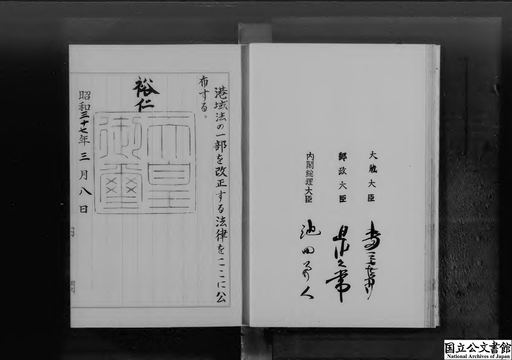 大蔵大臣
郵政大臣 迫水久常
内閣総理大臣 池田勇人
港域法の一部を改正する法律をここに公
布する。
裕仁
天皇御璽
昭和三十七年三月八日
国立公文書館
National Archives of Japan